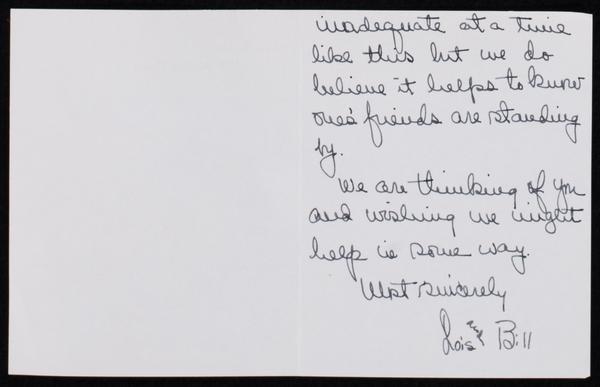 inadequate at a time
like this but we do
believe it helps to know
one's friends are standing
by.
We are thinking of you
and wishing we might
help in some way.
Most sincerely
Lois and Bill